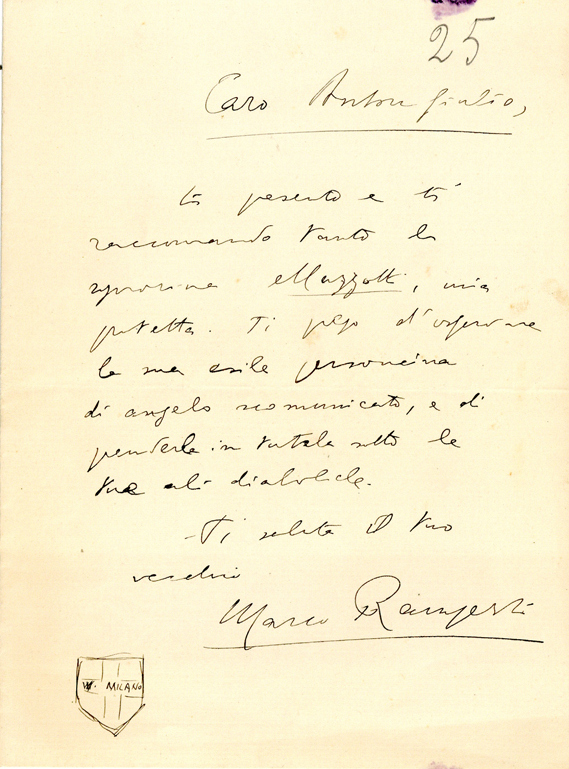 25
Caro Anton Giulio,
ti presento e ti
raccomando tanto la
signorina Mazzotti, mia
protetta. Ti prego d'osservare
la sua esile personcina
di angelo scomunicato, e di
prenderla in tutela sotto le
tue ali diaboliche.
Ti saluta il tuo
vecchio
Marco Ramperti
W. MILANO